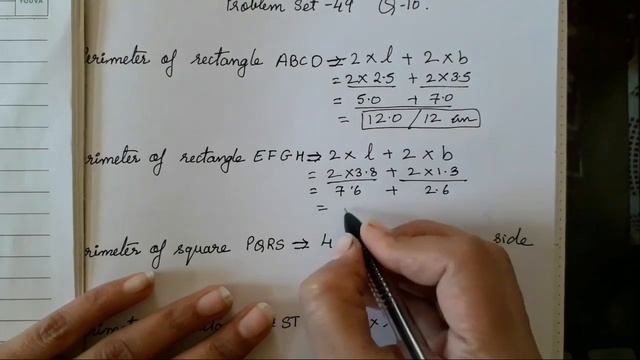 YOUVA
Problem Set -49 Q-10.
erimeter of rectangle ABCD ⇒ 2 × l + 2 × b
= 2 × 2.5 + 2 × 3.5
= 5.0 + 7.0
= 12.0 / 12 cm
rimeter of rectangle EFGH ⇒ 2 × l + 2 × b
= 2 × 3.8 + 2 × 1.3
= 7.6 + 2.6
=
rimeter of square PQRS ⇒ 4 side
ST